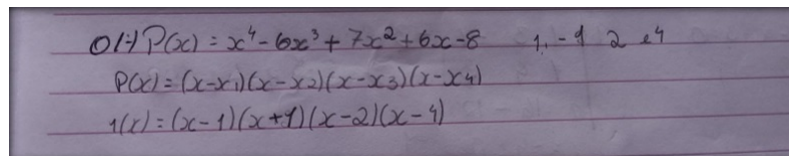 01-) P(x) = x⁴ - 6x³ + 7x² + 6x - 8 1, -1 2 e 4
P(x) = (x-x₁)(x-x₂)(x-x₃)(x-x₄)
1(x) = (x-1)(x+1)(x-2)(x-4)